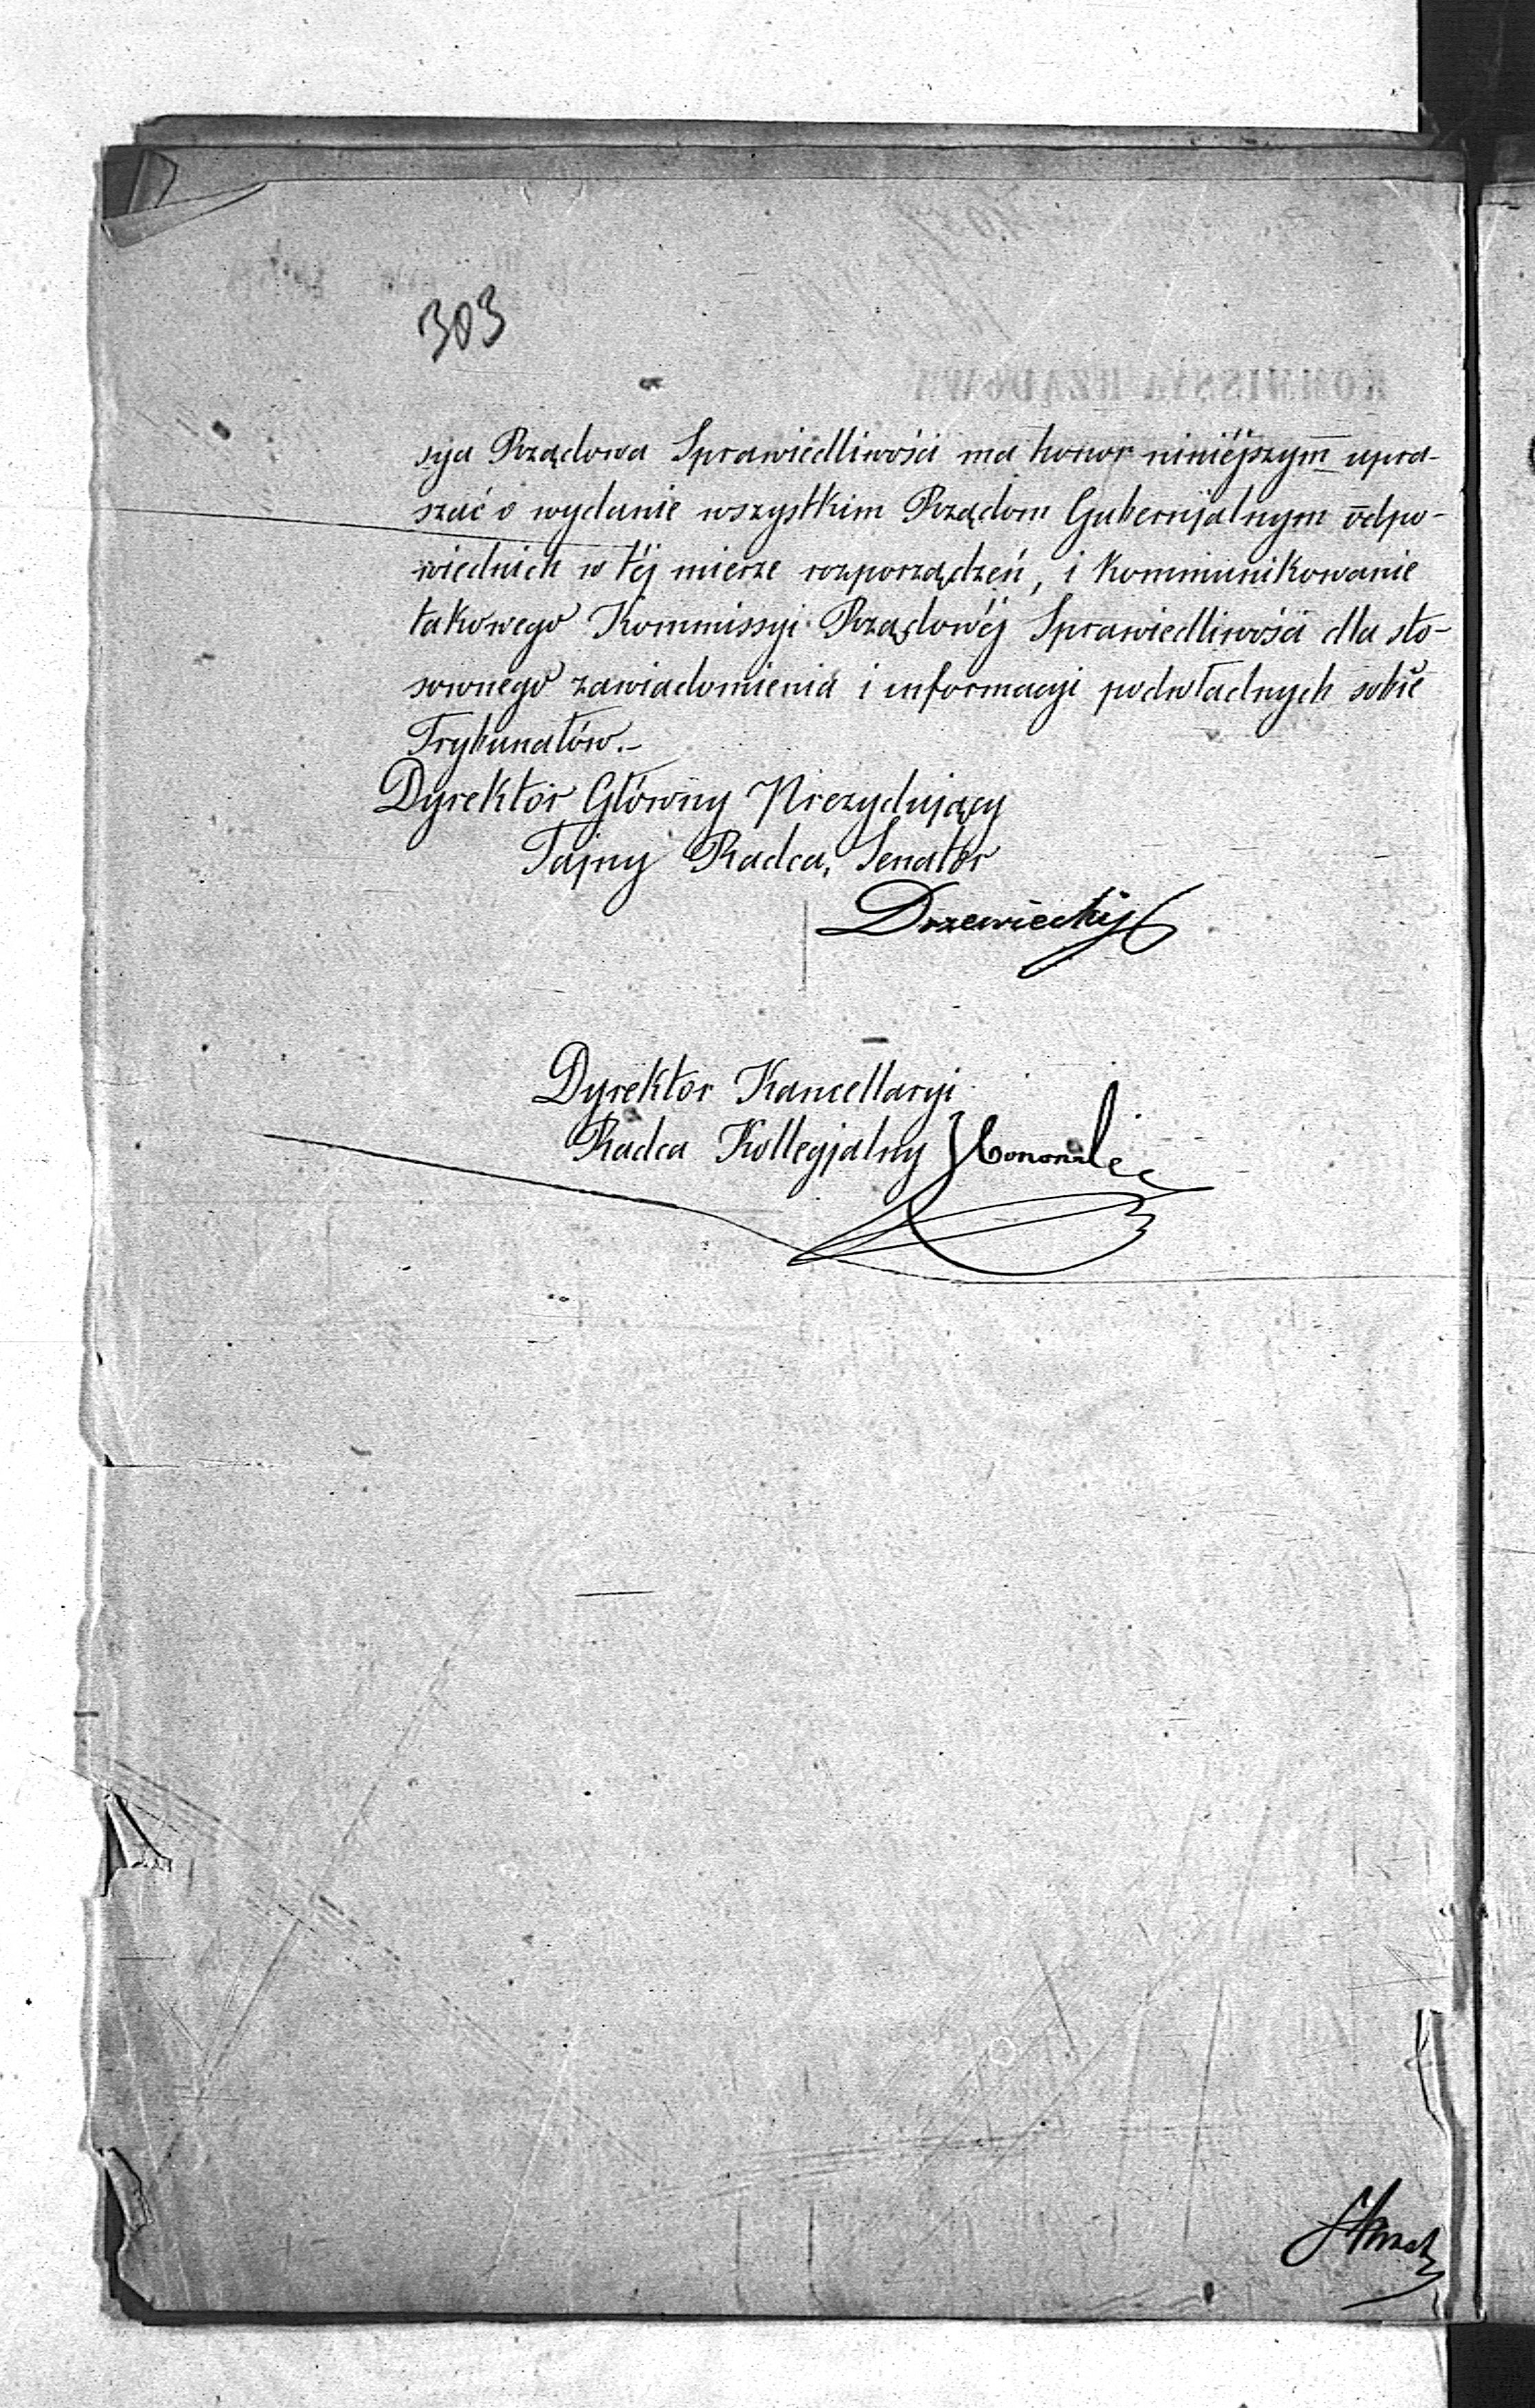 303
syja Rządowa Sprawiedliwości ma honor niniéjszym upra-
szać o wydanie wszystkim Rządom Gubernjalnym odpo-
wiednich w téj mierze rozporządzeń, i kommunikowanie
takowego Kommissyi Rządowéj Sprawiedliwości dla sto-
sownego zawiadomienia i informacyi podwładnych sobie
Trybunałów.-
Dyrektor Główny Prezydujący
Tajny Radca, Senator
Drzewiecky
Dyrektor Kancellaryi
Radca Kollegjalny